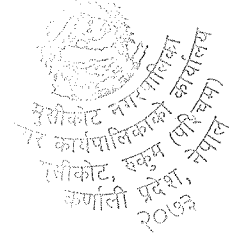 मुसीकोट नगरपालिका
नगर कार्यपालिकाको कार्यालय
मुसीकोट, रुकुम (पश्चिम)
कर्णाली प्रदेश, नेपाल
२०७३